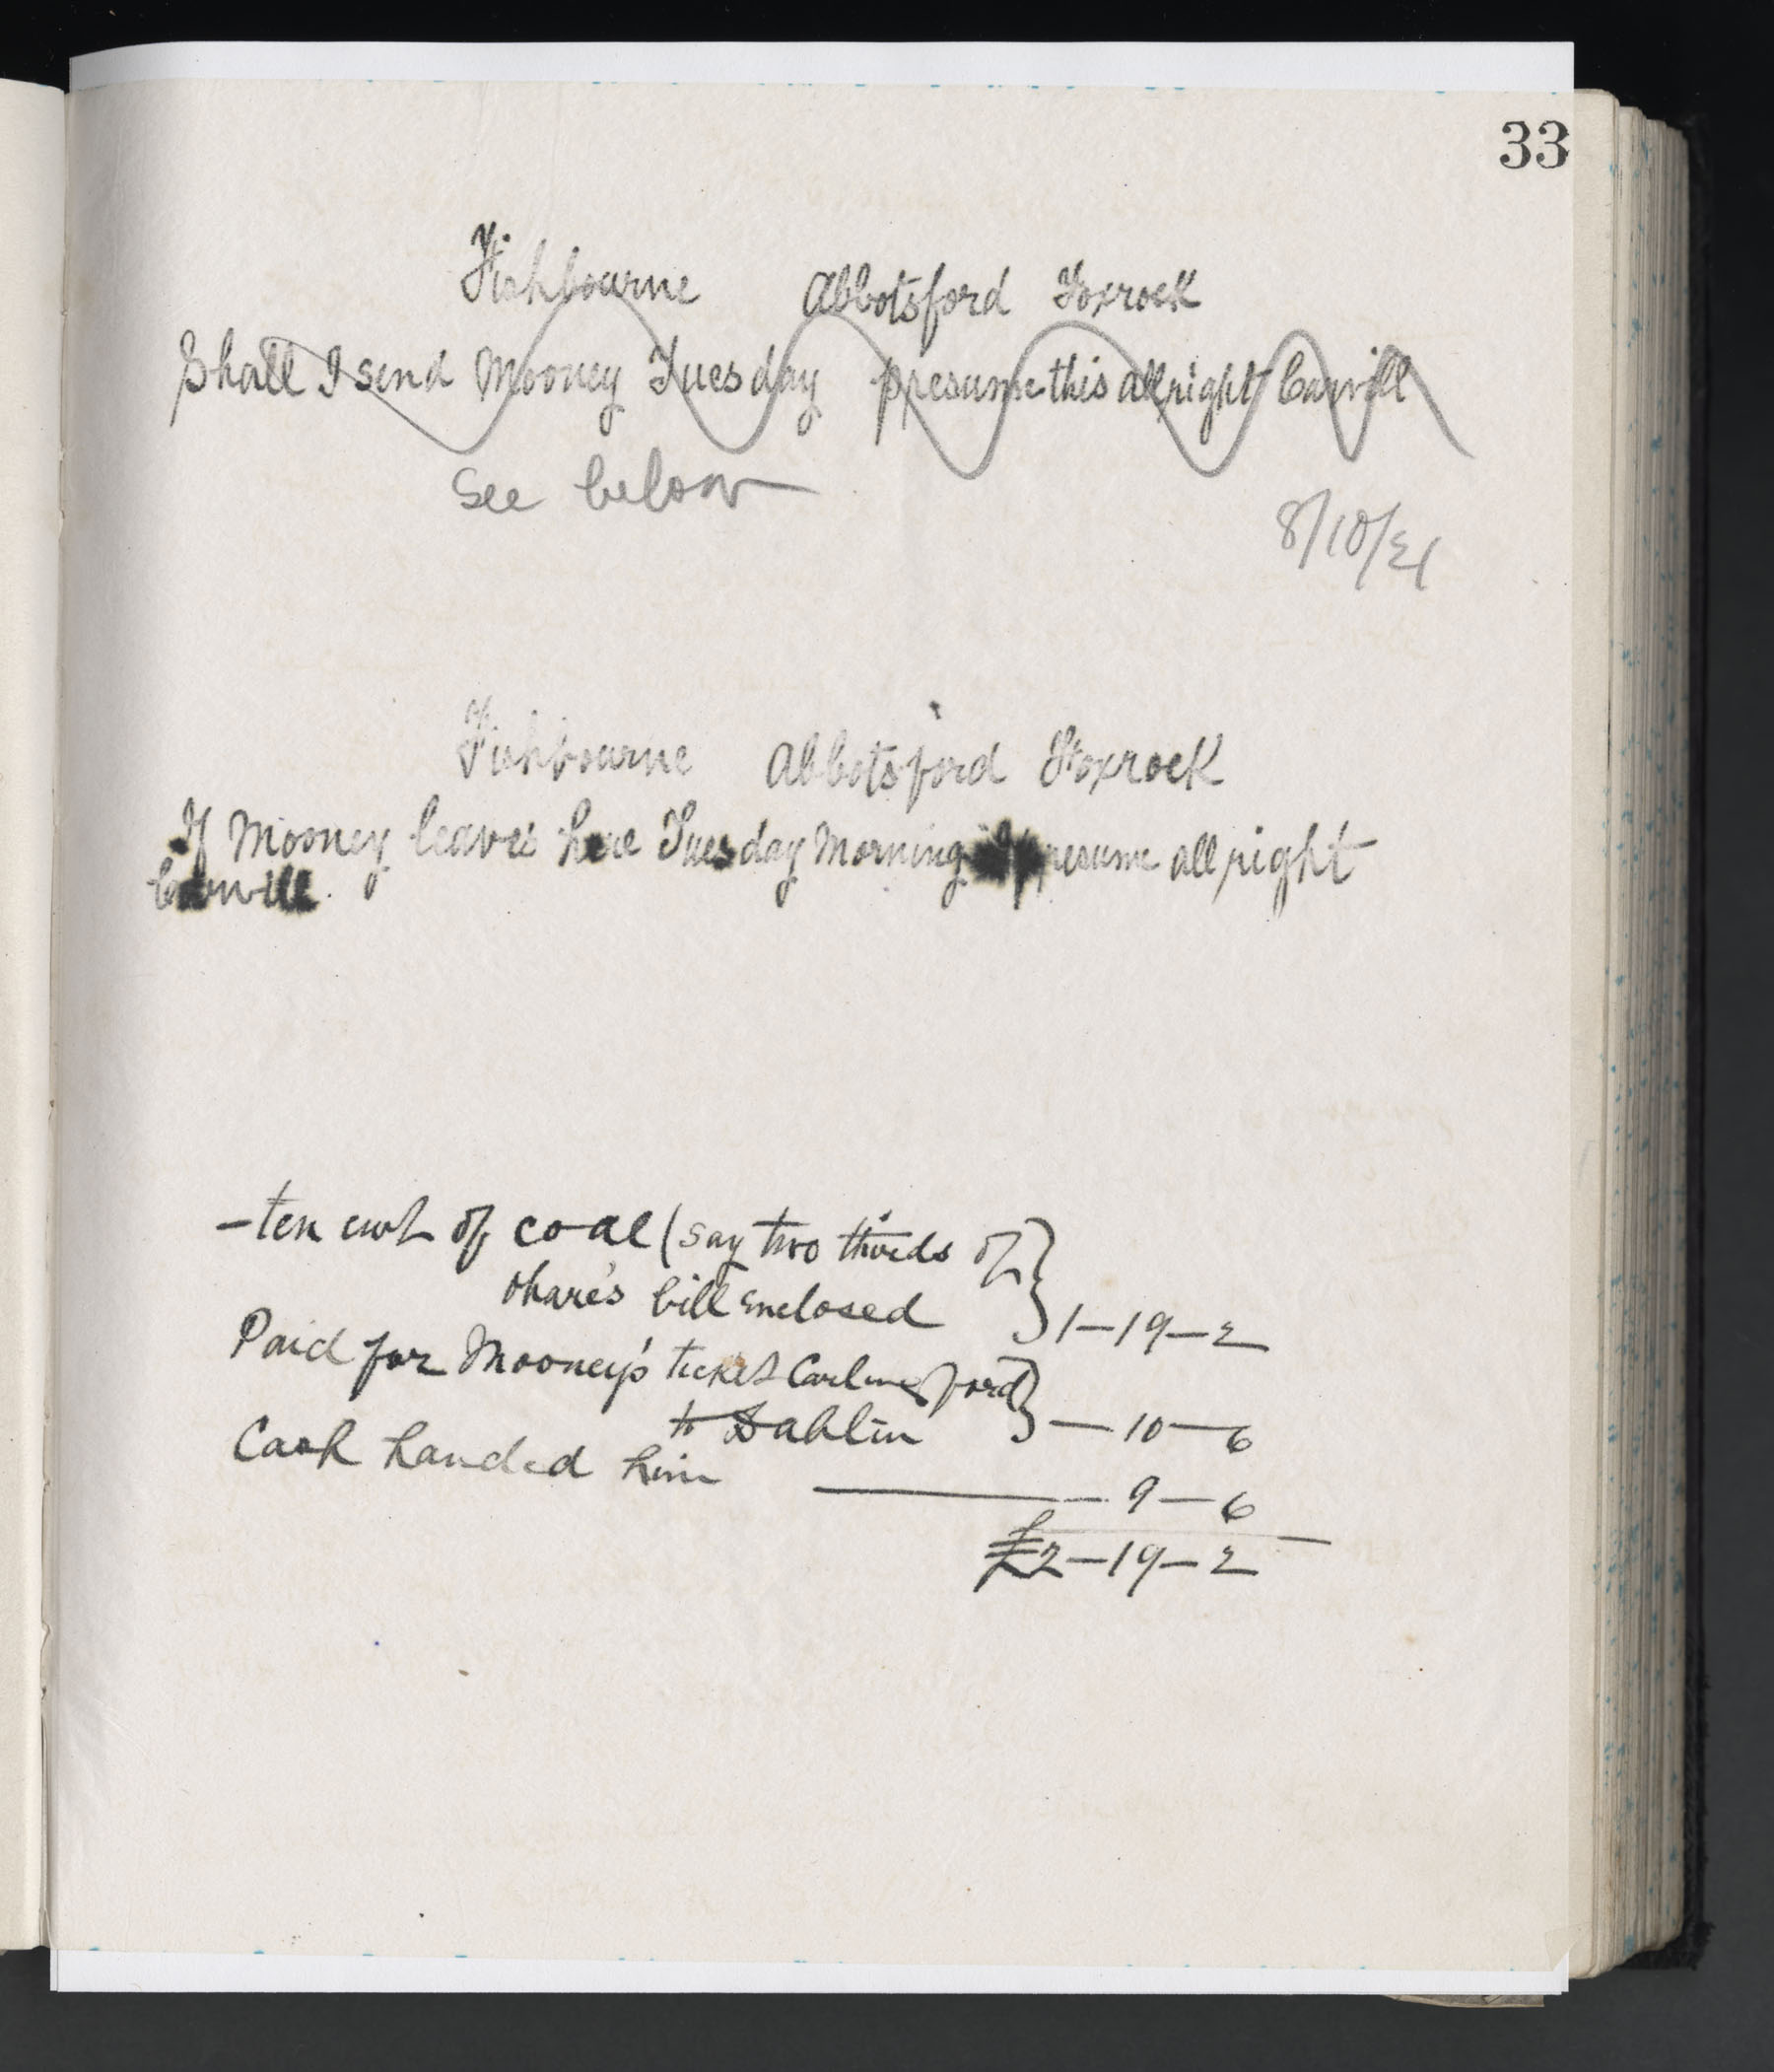 33
Fishbourne Abbotsford Foxrock
Shall I send Mooney Tuesday presume this allright Carvill
see below
8/10/21
Fishbourne Abbotsford Foxrock
If Mooney leaves here Tuesday Morning presume all right
Carvill
- ten cwt of coal (say two thirds of
Ohare's bill enclosed 1-19-2
Paid for Mooney's ticket Carlingford
to Dublin - 10 - 6
Cash handed him - 9 - 6
£2-19-2